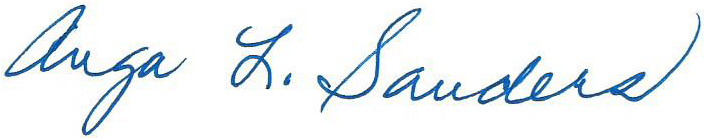 Anga L. Sanders